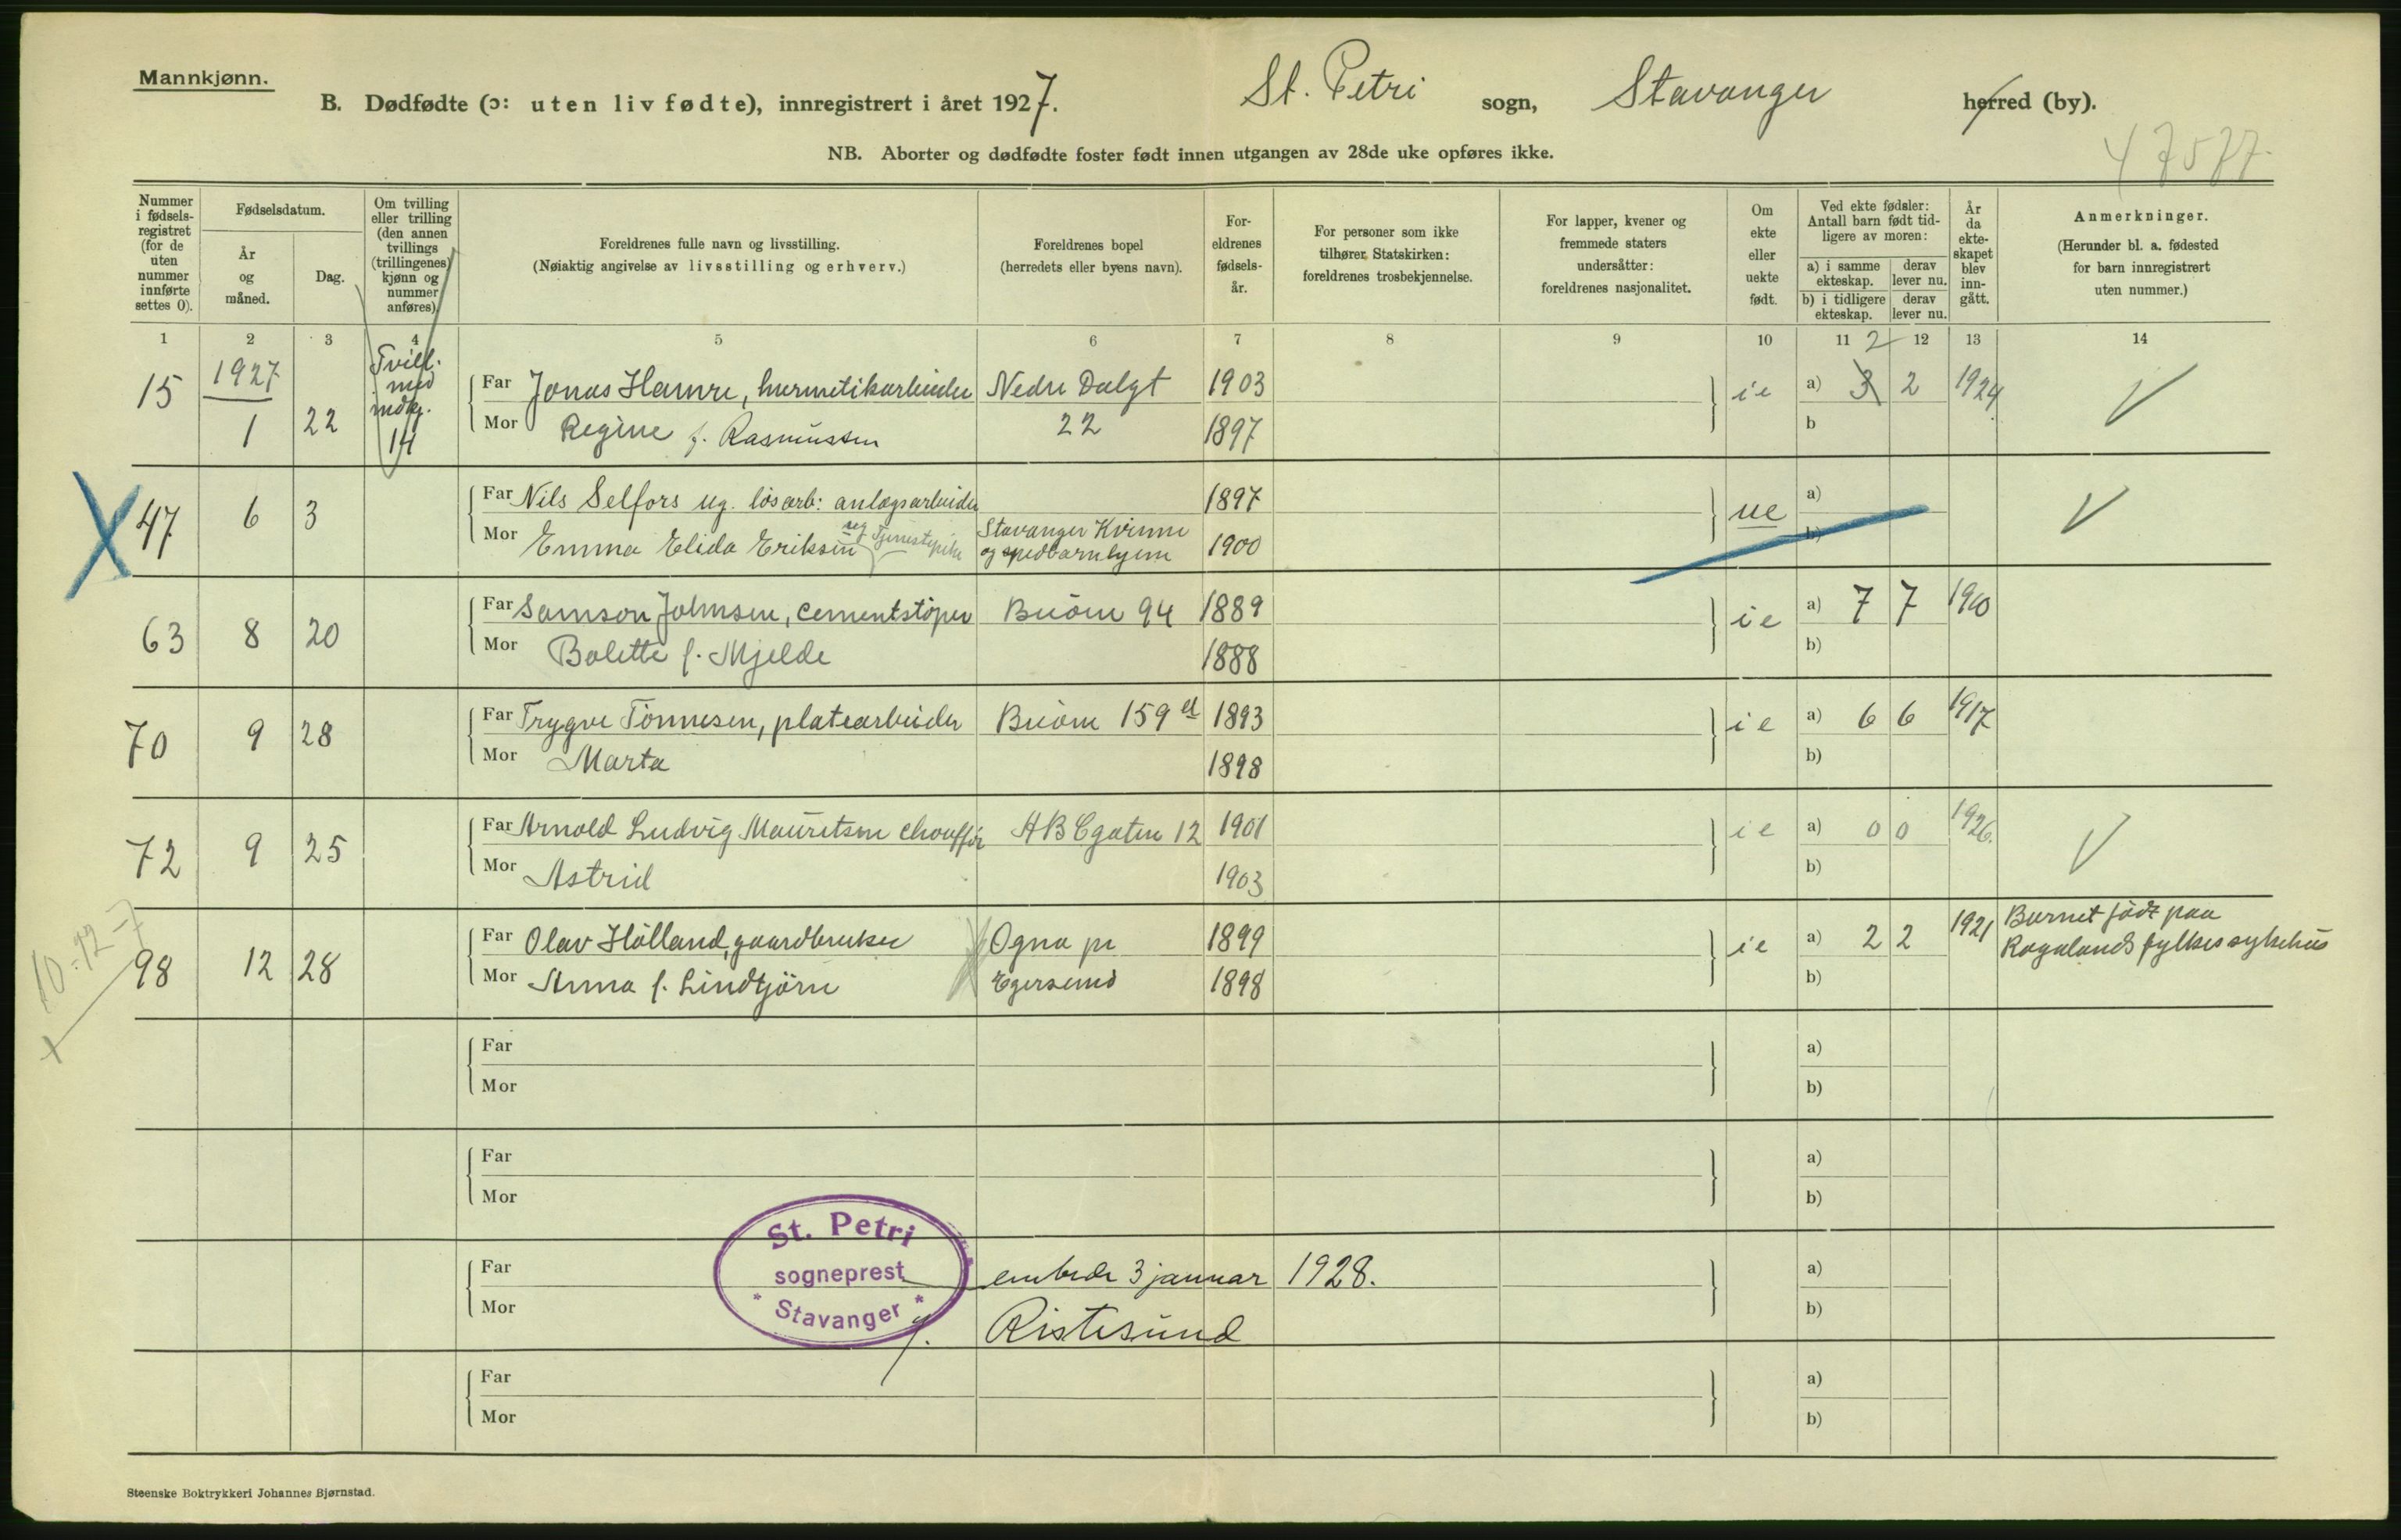 Mannkjønn.
B. Dødfødte (ɔ: uten liv fødte), innregistrert i året 1927. St. Petri sogn, Stavanger herred (by).
NB. Aborter og dødfødte foster født innen utgangen av 28de uke opføres ikke.
47577.
Nummer i fødsels-registret (for de uten nummer innførte settes 0).
Fødselsdatum.
År og måned.
Dag.
Om tvilling eller trilling (den annen tvillings (trillingenes) kjønn og nummer anføres).
Foreldrenes fulle navn og livsstilling.
(Nøiaktig angivelse av livsstilling og erhverv.)
Foreldrenes bopel
(herredets eller byens navn).
For-eldrenes fødsels-år.
For personer som ikke tilhører Statskirken: foreldrenes trosbekjennelse.
For lapper, kvener og fremmede staters undersåtter: foreldrenes nasjonalitet.
Om ekte eller uekte født.
Ved ekte fødsler: Antall barn født tid-ligere av moren:
a) i samme ekteskap. derav lever nu.
b) i tidligere ekteskap. derav lever nu.
År da ekte-skapet blev inn-gått.
Anmerkninger.
(Herunder bl. a. fødested for barn innregistrert uten nummer.)
1 2 3 4 5 6 7 8 9 10 11 12 13 14
15 1927 1 22 Tvill. med indkj. 14
Far Jonas Hamre, hermetikarbeider Nedre Dalgt 1903 ie a) 3 2 2 1924
Mor Regine f. Rasmussen 22 1897 b
47 6 3
Far Nils Selfors ug. løsarb: anlægsarbeider 1897 ue a)
Mor Emma Elida Eriksen ug Tjenestepike Stavanger Kvinne og spedbarnhjem 1900 b)
63 8 20
Far Samson Johnsen, cementstøper Buøen 94 1889 ie a) 7 7 1910
Mor Bolette f. Mjelde 1888 b)
70 9 28
Far Trygve Tönnesen, platearbeider Buøen 159 1893 ie a) 6 6 1917
Mor Marta 1898 b)
72 9 25
Far Arnold Ludvig Mauritsen chauffør ABCgaten 12 1901 ie a) 0 0 1926.
Mor Astrid 1903 b)
10-12-7
98 12 28
Far Olav Hölland, gaardbruker Ogna pr 1899 ie a) 2 2 1921 Barnet født paa
Mor Anna f. Lindtjörn Egersund 1898 b) Rogalands fylkessykehus
Far a)
Mor b)
Far a)
Mor b)
St. Petri
sogneprest
* Stavanger *
Far embede 3 januar 1928. a)
Mor Ristesund b)
Far a)
Mor b)
Steenske Boktrykkeri Johannes Bjørnstad.